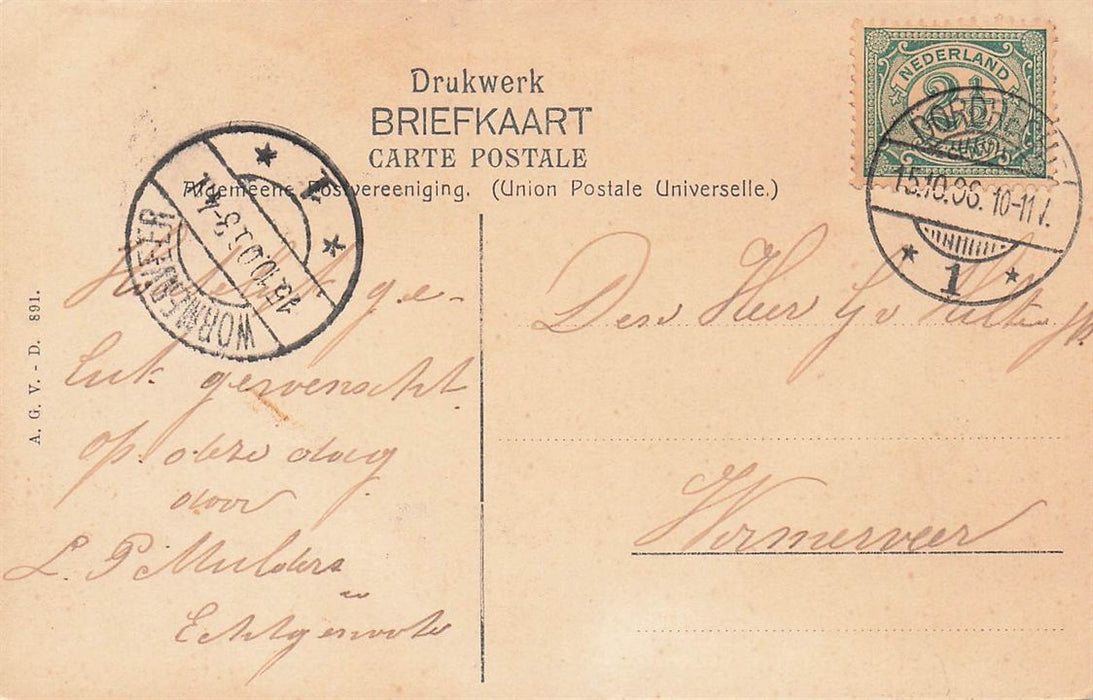 Drukwerk
BRIEFKAART
CARTE POSTALE
Algemeene Postvereeniging. (Union Postale Universelle.)
NEDERLAND
2½
DORDRECHT
15.10.06. 10-11 V.
1
1
WORMERVEER
15.10.0 3-4
A. G. V. - D. 891.
ge-
luk gewenscht
op deze dag
door
L. P Mulders
en
Echtgenoote
Den Heer
Wormerveer